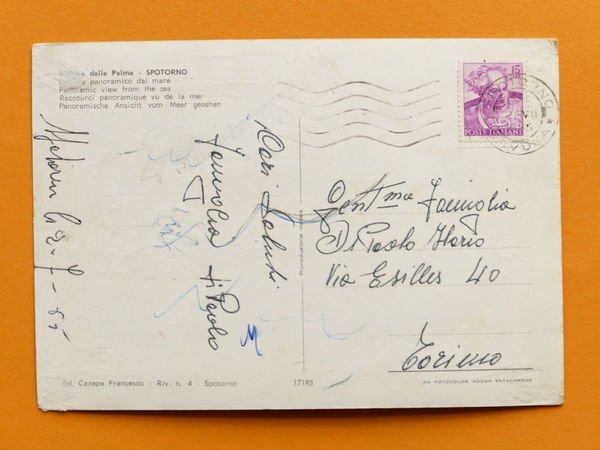 delle Palme - SPOTORNO
panoramico dal mare
Panoramic view from the sea
Raccourci panoramique vu de la mer
Panoramische Ansicht vom Meer gesehen
15
POSTE ITALIANE
Cari Saluti
Famiglia
di Paolo
Gent.ma Famiglia
Di Paolo Ilario
Via Exilles 40
Torino
Ed. Canepa Francesco - Riv. n. 4 - Spotorno
17193
DA FOTOCOLOR KODAK EKTACHROME